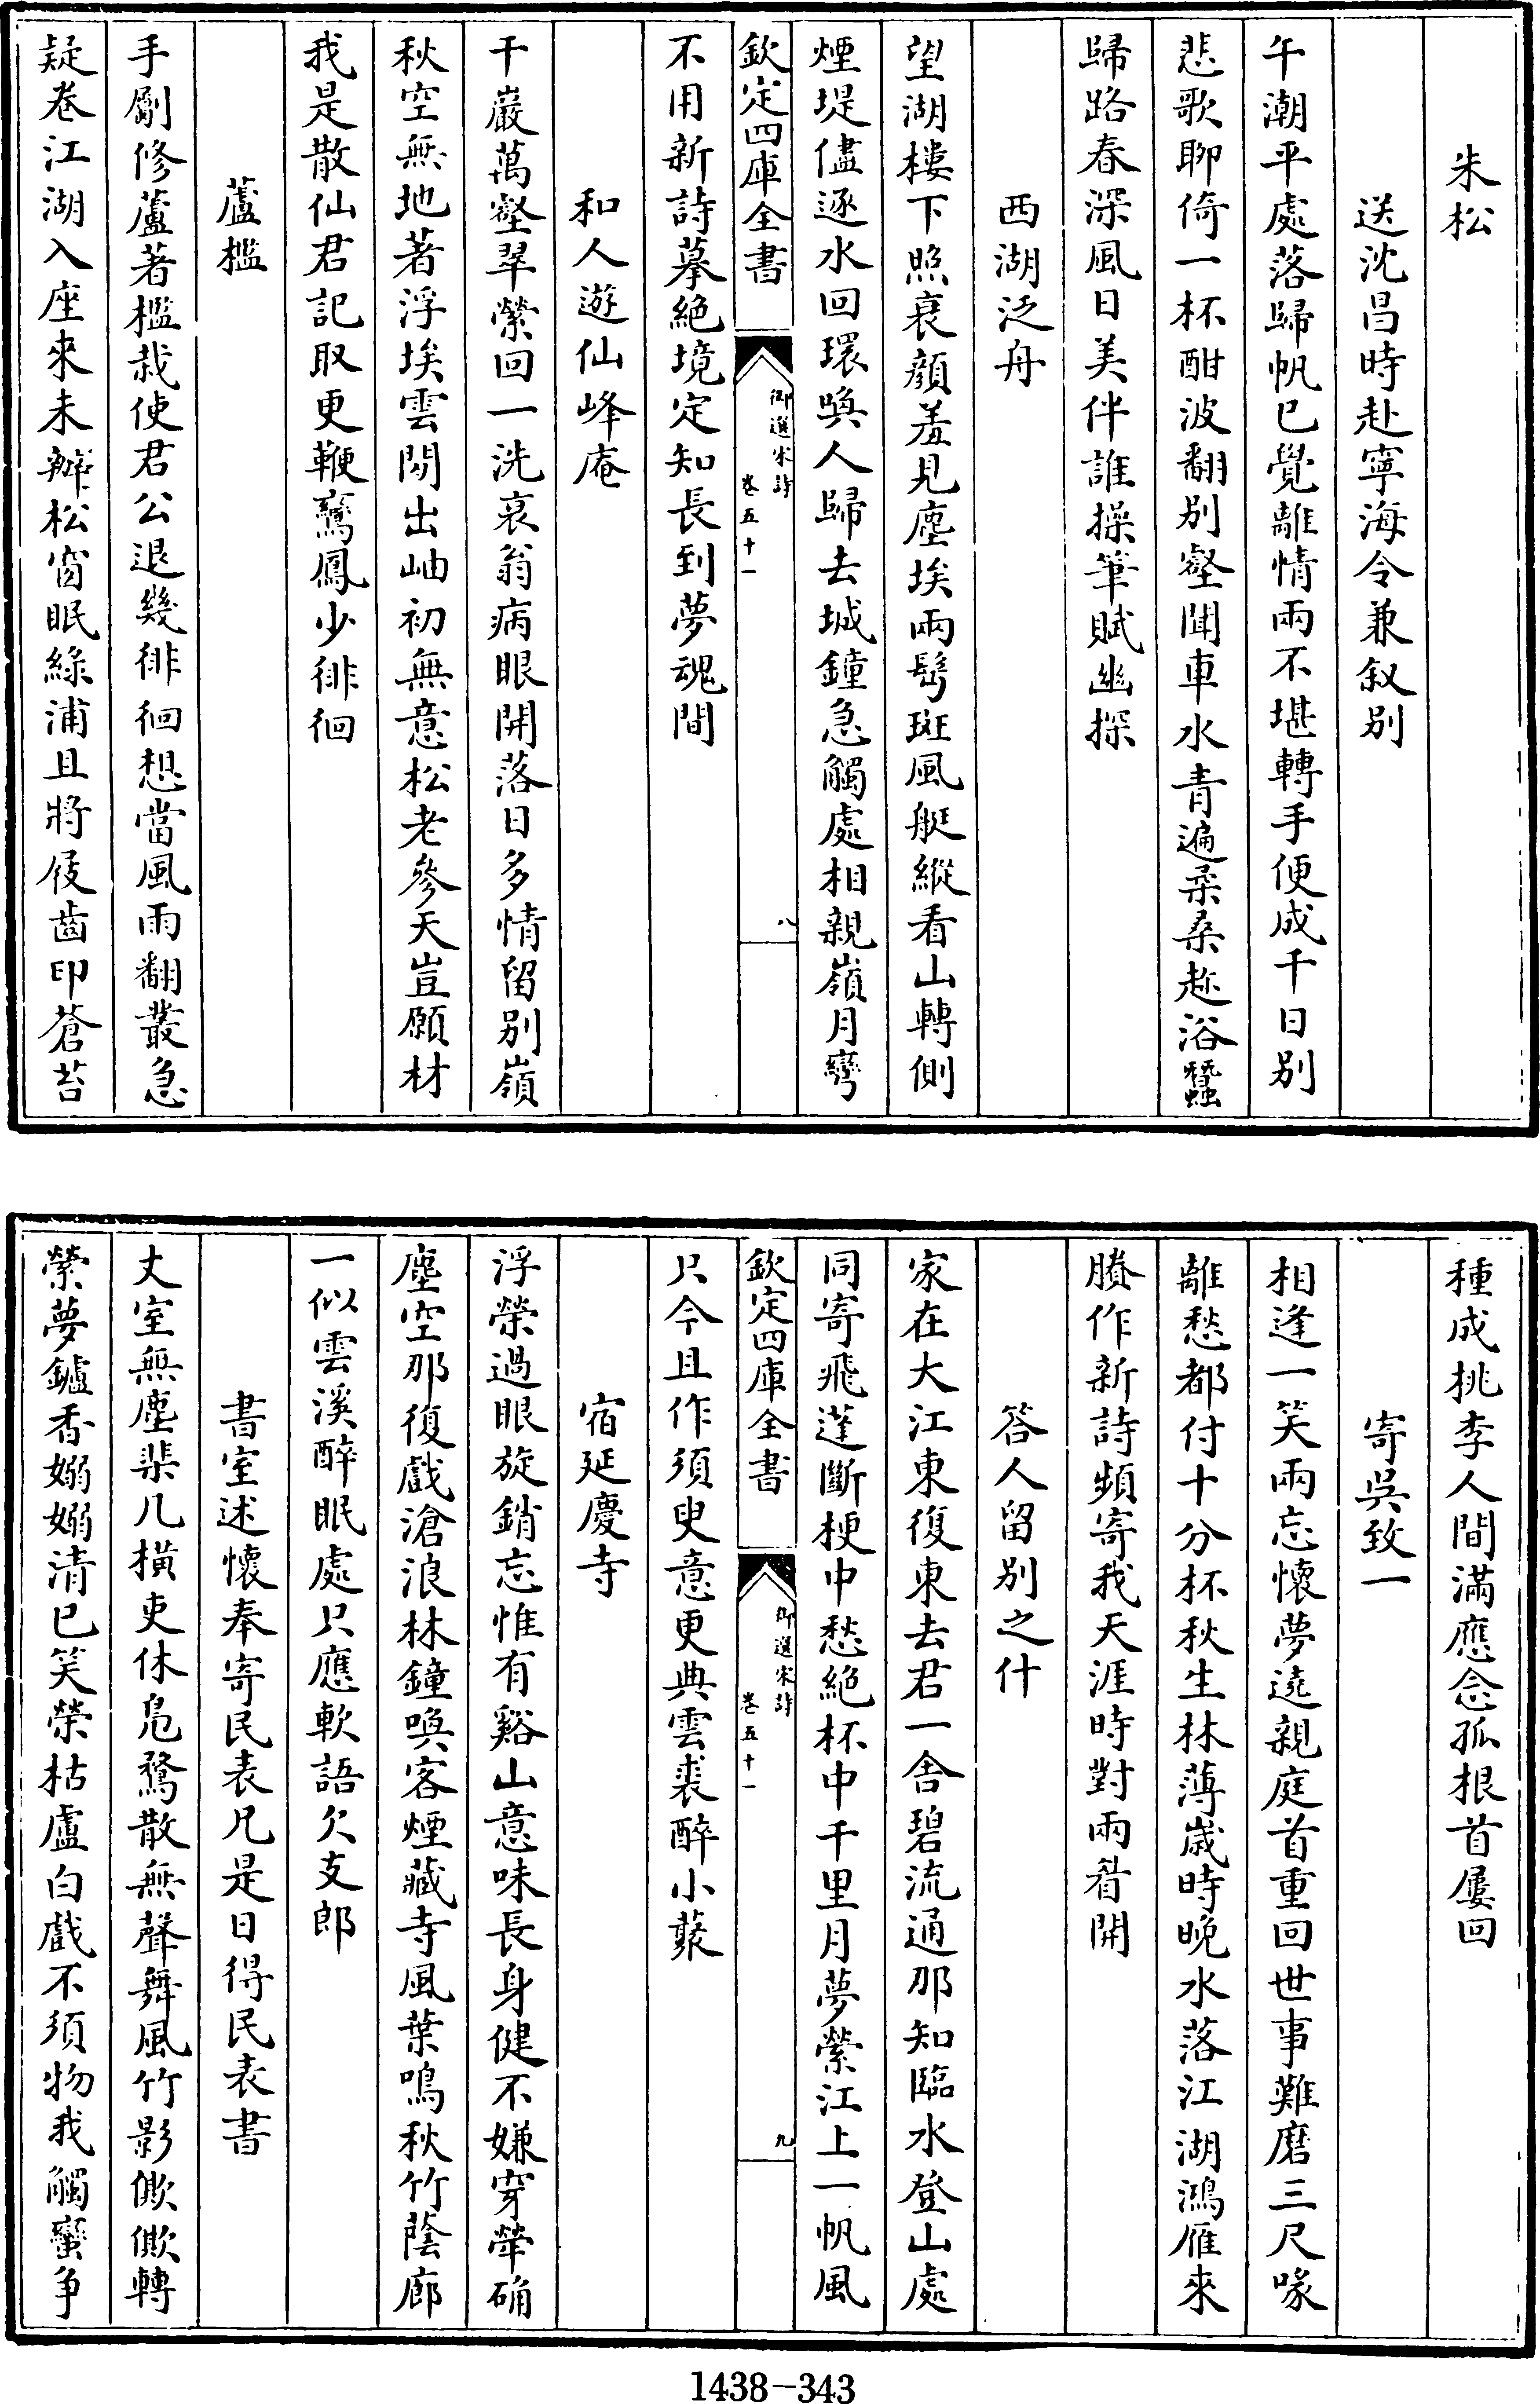 朱松
送沈昌時赴寧海令兼叙别
午潮平處落歸帆已覺離情兩不堪轉手便成千日别
悲歌聊倚一杯酣波翻别壑聞車水青遍柔桑趂浴蠶
歸路春深風日美伴誰操筆賦幽探
西湖泛舟
望湖樓下照衰顔羞見塵埃兩鬢斑風艇縱看山轉側
煙堤儘逐水回環喚人歸去城鐘急觸處相親嶺月彎
欽定四庫全書
御選宋詩
卷五十一
八
不用新詩摹絶境定知長到夢魂間
和人遊仙峰庵
千巖萬壑翠縈回一洗衰翁病眼開落日多情留别嶺
秋空無地著浮埃雲閒出岫初無意松老參天豈願材
我是散仙君記取更鞭鸞鳳少徘徊
蘆檻
手劚修蘆著檻栽使君公退幾徘徊想當風雨翻叢急
疑卷江湖入座來未辦松窗眠綠浦且將屐齒印蒼苔
種成桃李人間滿應念孤根首屢回
寄吳致一
相逢一笑兩忘懷夢遶親庭首重回世事難磨三尺喙
離愁都付十分杯秋生林薄歲時晚水落江湖鴻雁來
賸作新詩頻寄我天涯時對兩眉開
答人留别之什
家在大江東復東去君一舍碧流通那知臨水登山處
同寄飛蓬斷梗中愁絶杯中千里月夢縈江上一帆風
欽定四庫全書
御選宋詩
卷五十一
九
只今且作須臾意更典雲裘醉小藂
宿延慶寺
浮榮過眼旋銷忘惟有谿山意味長身健不嫌穿犖确
塵空那復戲滄浪林鐘喚客煙藏寺風葉鳴秋竹蔭廊
一似雲溪醉眠處只應軟語欠支郎
書室述懷奉寄民表凡是日得民表書
丈室無塵棐几横吏休鳧鶩散無聲舞風竹影僛僛轉
縈夢鑪香嫋嫋清已笑榮枯盧白戲不須物我觸蠻爭
1438-343